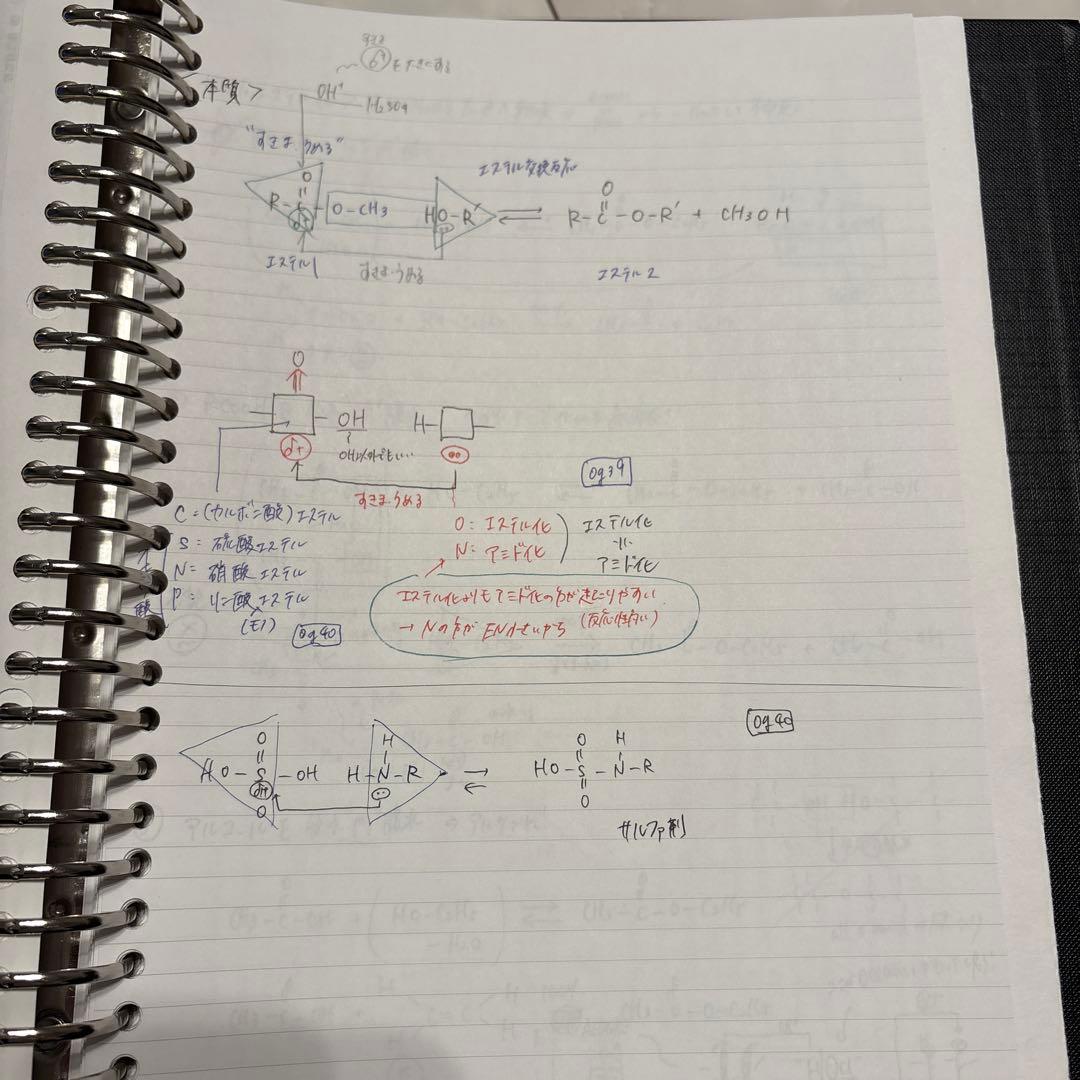 すきま
δ+ を大きくする
本質>
OH+
H₂SO₄
"すきま・うめる"
エステル交換反応
O
R-C-O-CH₃ HO-R′ ⇌ R-C-O-R′ + CH₃OH
δ+
エステル1 すきま・うめる エステル2
O
OH H-
δ+
OH以外でもいい…
すきま・うめる
og39
C = (カルボン酸)エステル
S = 硫酸エステル
N = 硝酸エステル
P = リン酸エステル
(モノ)
og40
O: エステル化
N: アミド化
エステル化
アミド化
エステル化よりもアミド化の方が起こりやすい
(反応性高い)
→ Nの方がEN小さいから
og40
O H O H
HO-S-OH H-N-R ⇌ HO-S-N-R
δ+
O O
サルファ剤